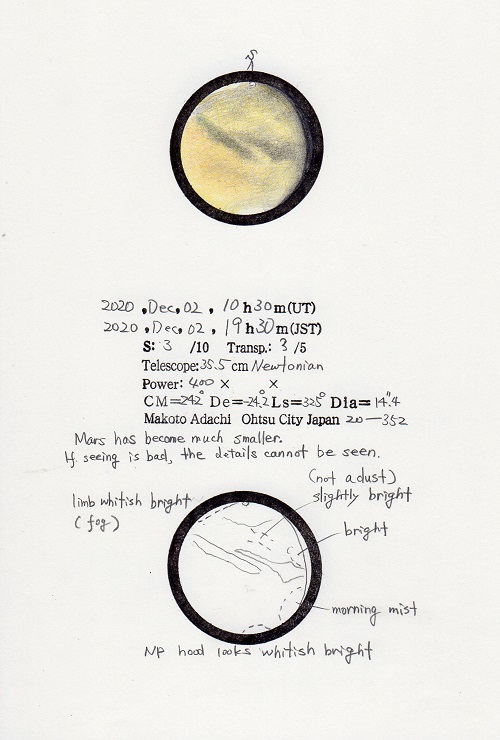 S
2020 , Dec, 02 , 10 h 30 m (UT)
2020 , Dec, 02 , 19 h 30 m (JST)
S: 3 /10 Transp.: 3 /5
Telescope: 35.5 cm Newtonian
Power: 400 × ×
CM=242° De=-24.2 Ls=325° Dia= 14".4
Makoto Adachi Ohtsu City Japan 20-352
Mars has become much smaller.
If seeing is bad, the details cannot be seen.
(not a dust)
slightly bright
limb whitish bright
(fog)
bright
morning mist
NP hood looks whitish bright